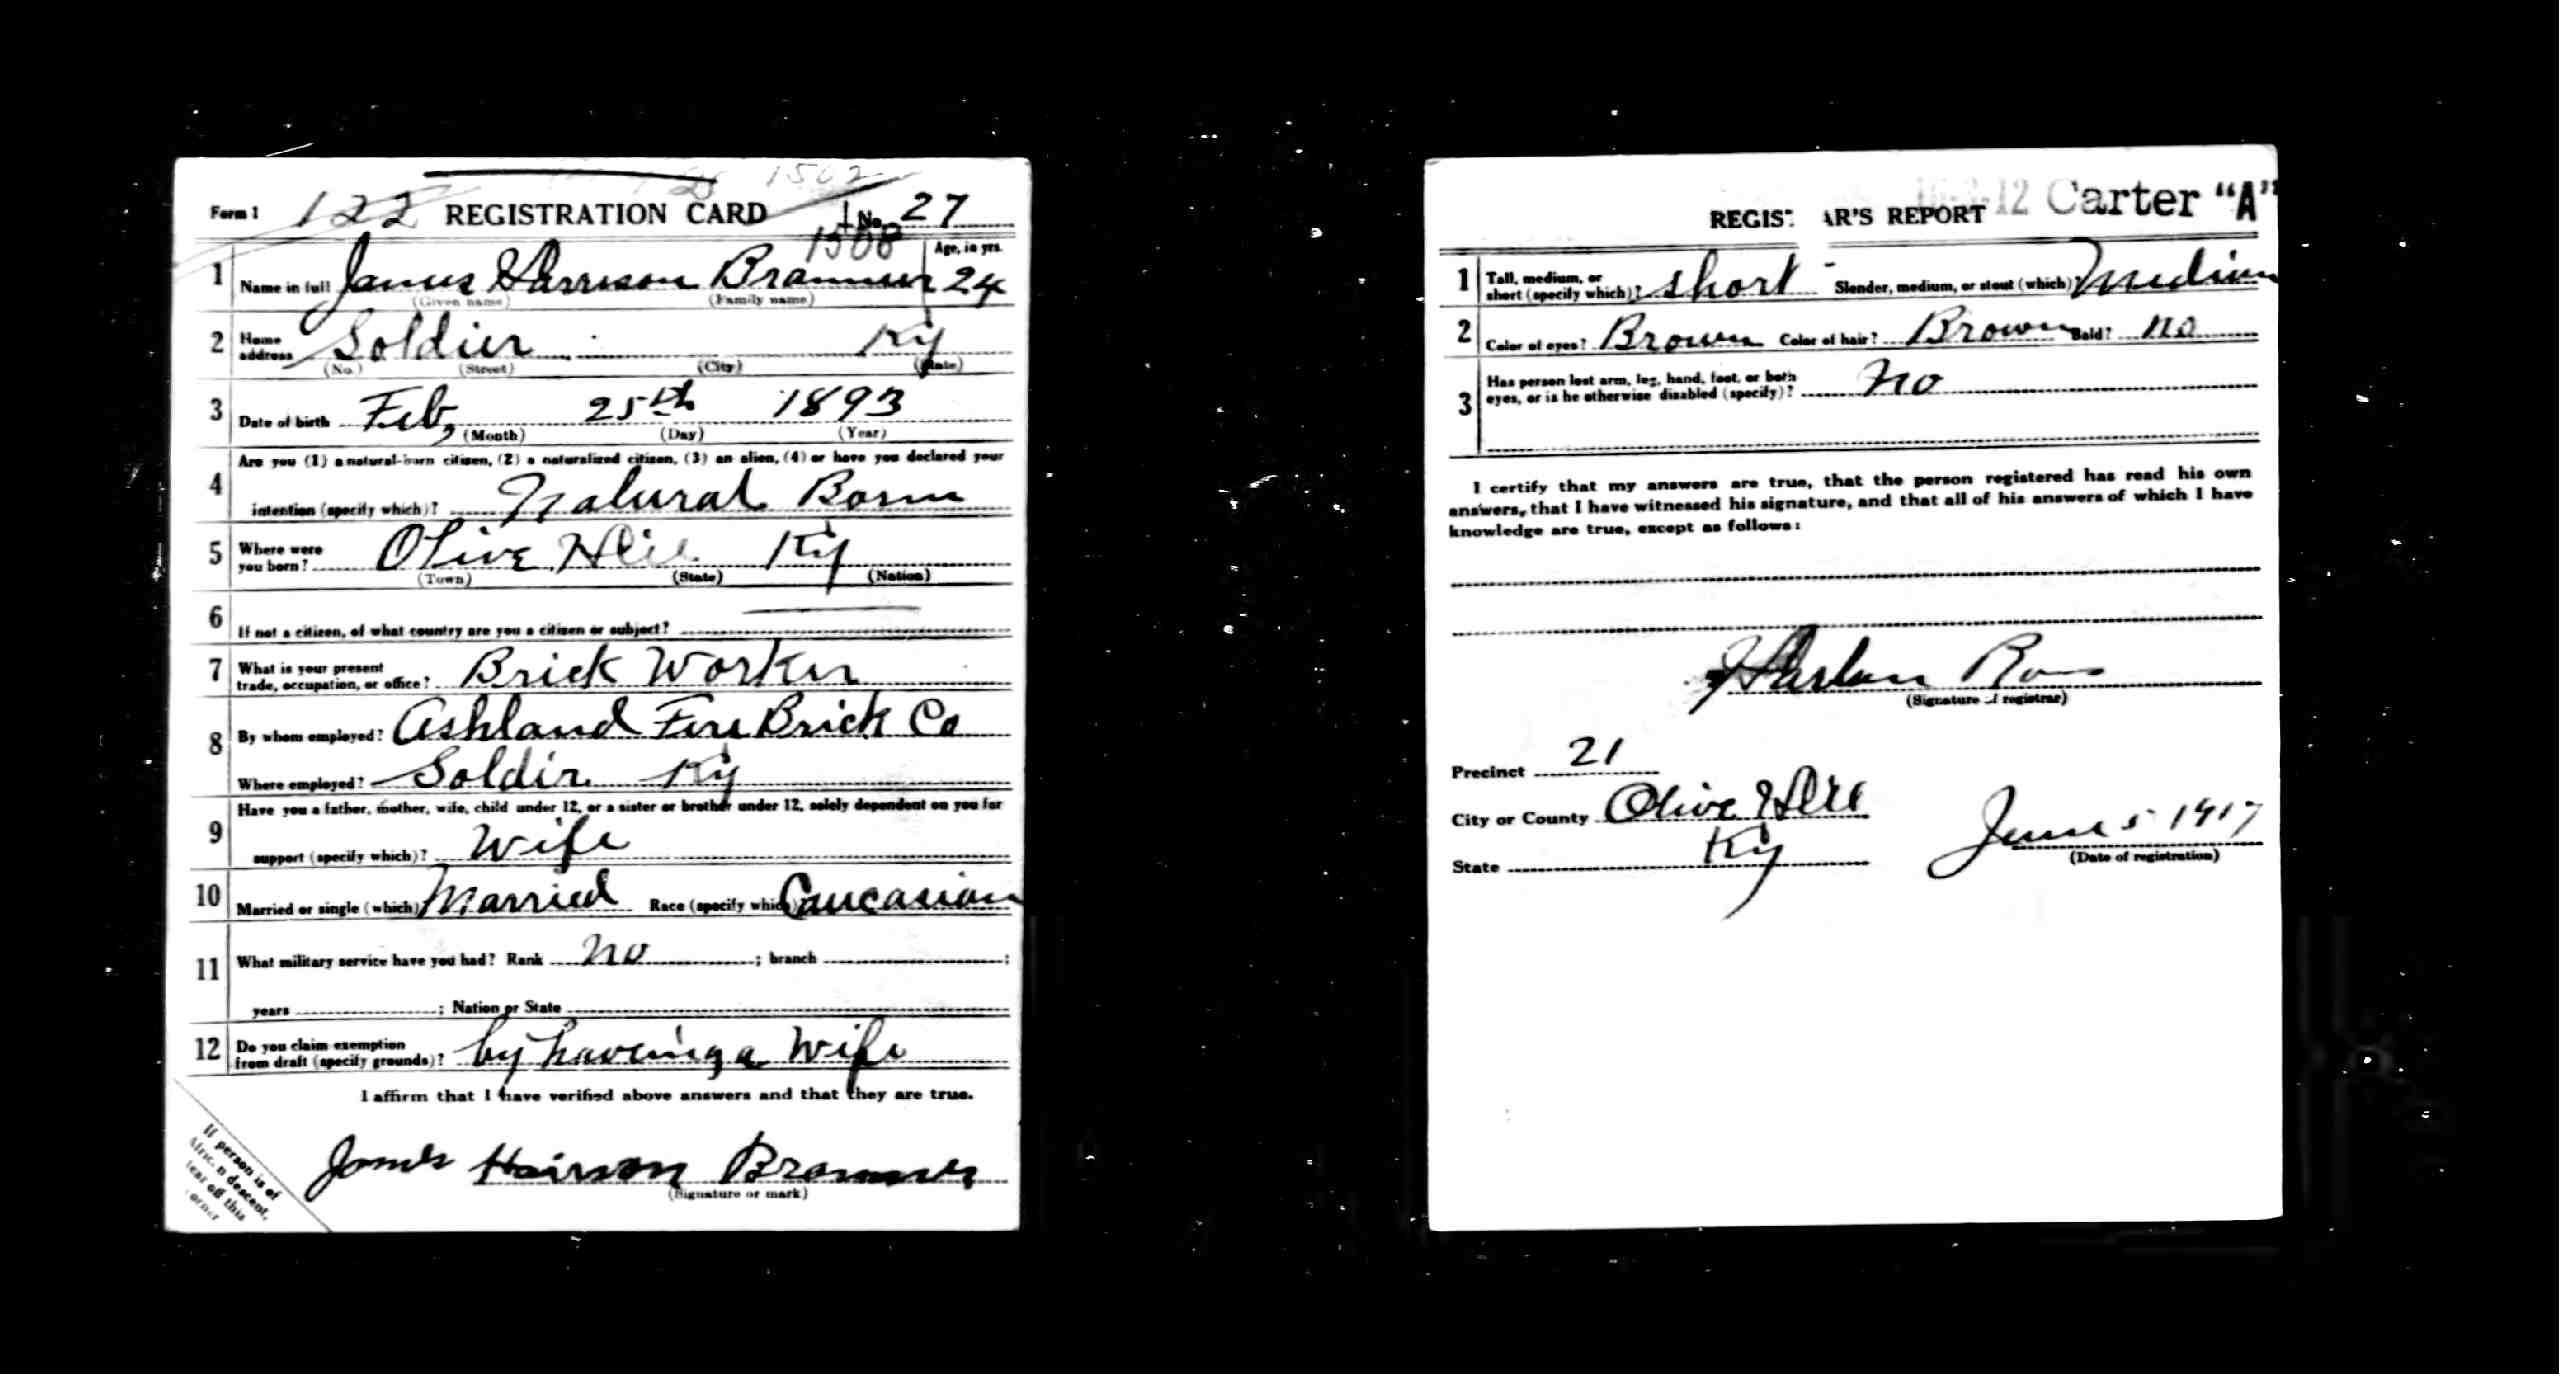 Form 1 122 REGISTRATION CARD No. 27
1508
1 Name in full James Harrison Branner Age, in yrs. 24
(Given name) (Family name)
2 Home address Soldier Ky
(No.) (Street) (City) (State)
3 Date of birth Feb, 25th 1893
(Month) (Day) (Year)
4 Are you (1) a natural-born citizen, (2) a naturalized citizen, (3) an alien, (4) or have you declared your
intention (specify which)? Natural Born
5 Where were you born? Olive Hill Ky
(Town) (State) (Nation)
6 If not a citizen, of what country are you a citizen or subject?
7 What is your present trade, occupation, or office? Brick Worker
8 By whom employed? Ashland Fire Brick Co
Where employed? Soldir Ky
9 Have you a father, mother, wife, child under 12, or a sister or brother under 12, solely dependent on you for
support (specify which)? Wife
10 Married or single (which) Married Race (specify which) Caucasian
11 What military service have you had? Rank no ; branch ;
years ; Nation or State
12 Do you claim exemption from draft (specify grounds)? by haveing a Wife
I affirm that I have verified above answers and that they are true.
James Hairson Branner
(Signature or mark)
If person is of
African descent,
tear off this
corner
12 Carter "A"
REGISTRAR'S REPORT
1 Tall, medium, or short (specify which)? short Slender, medium, or stout (which)? Medium
2 Color of eyes? Brown Color of hair? Brown Bald? no
3 Has person lost arm, leg, hand, foot, or both
eyes, or is he otherwise disabled (specify)? no
I certify that my answers are true, that the person registered has read his own
answers, that I have witnessed his signature, and that all of his answers of which I have
knowledge are true, except as follows:
Harlan
(Signature of registrar)
Precinct 21
City or County Olive Hill
State Ky
June 5 1917
(Date of registration)